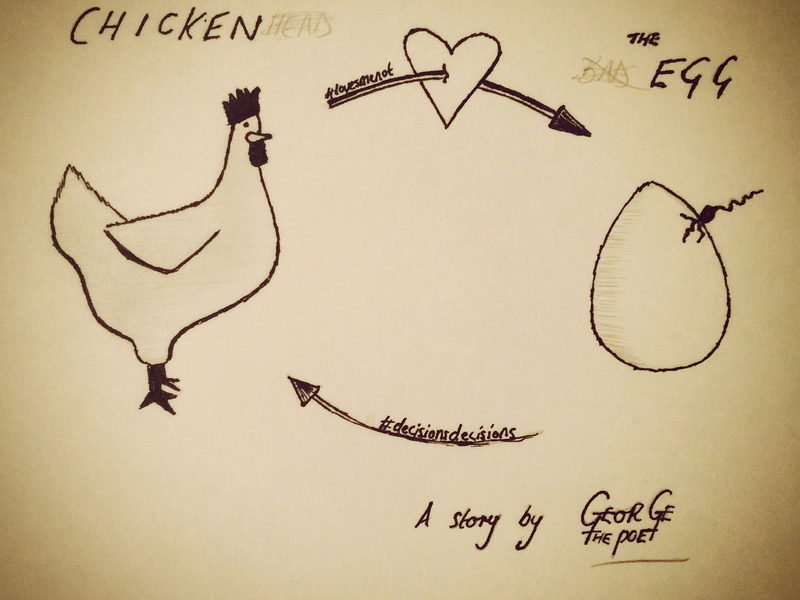 CHICKEN HEAD
THE
EGG
#lovesmenot
#decisionsdecisions
A story by GEORGE
THE POET